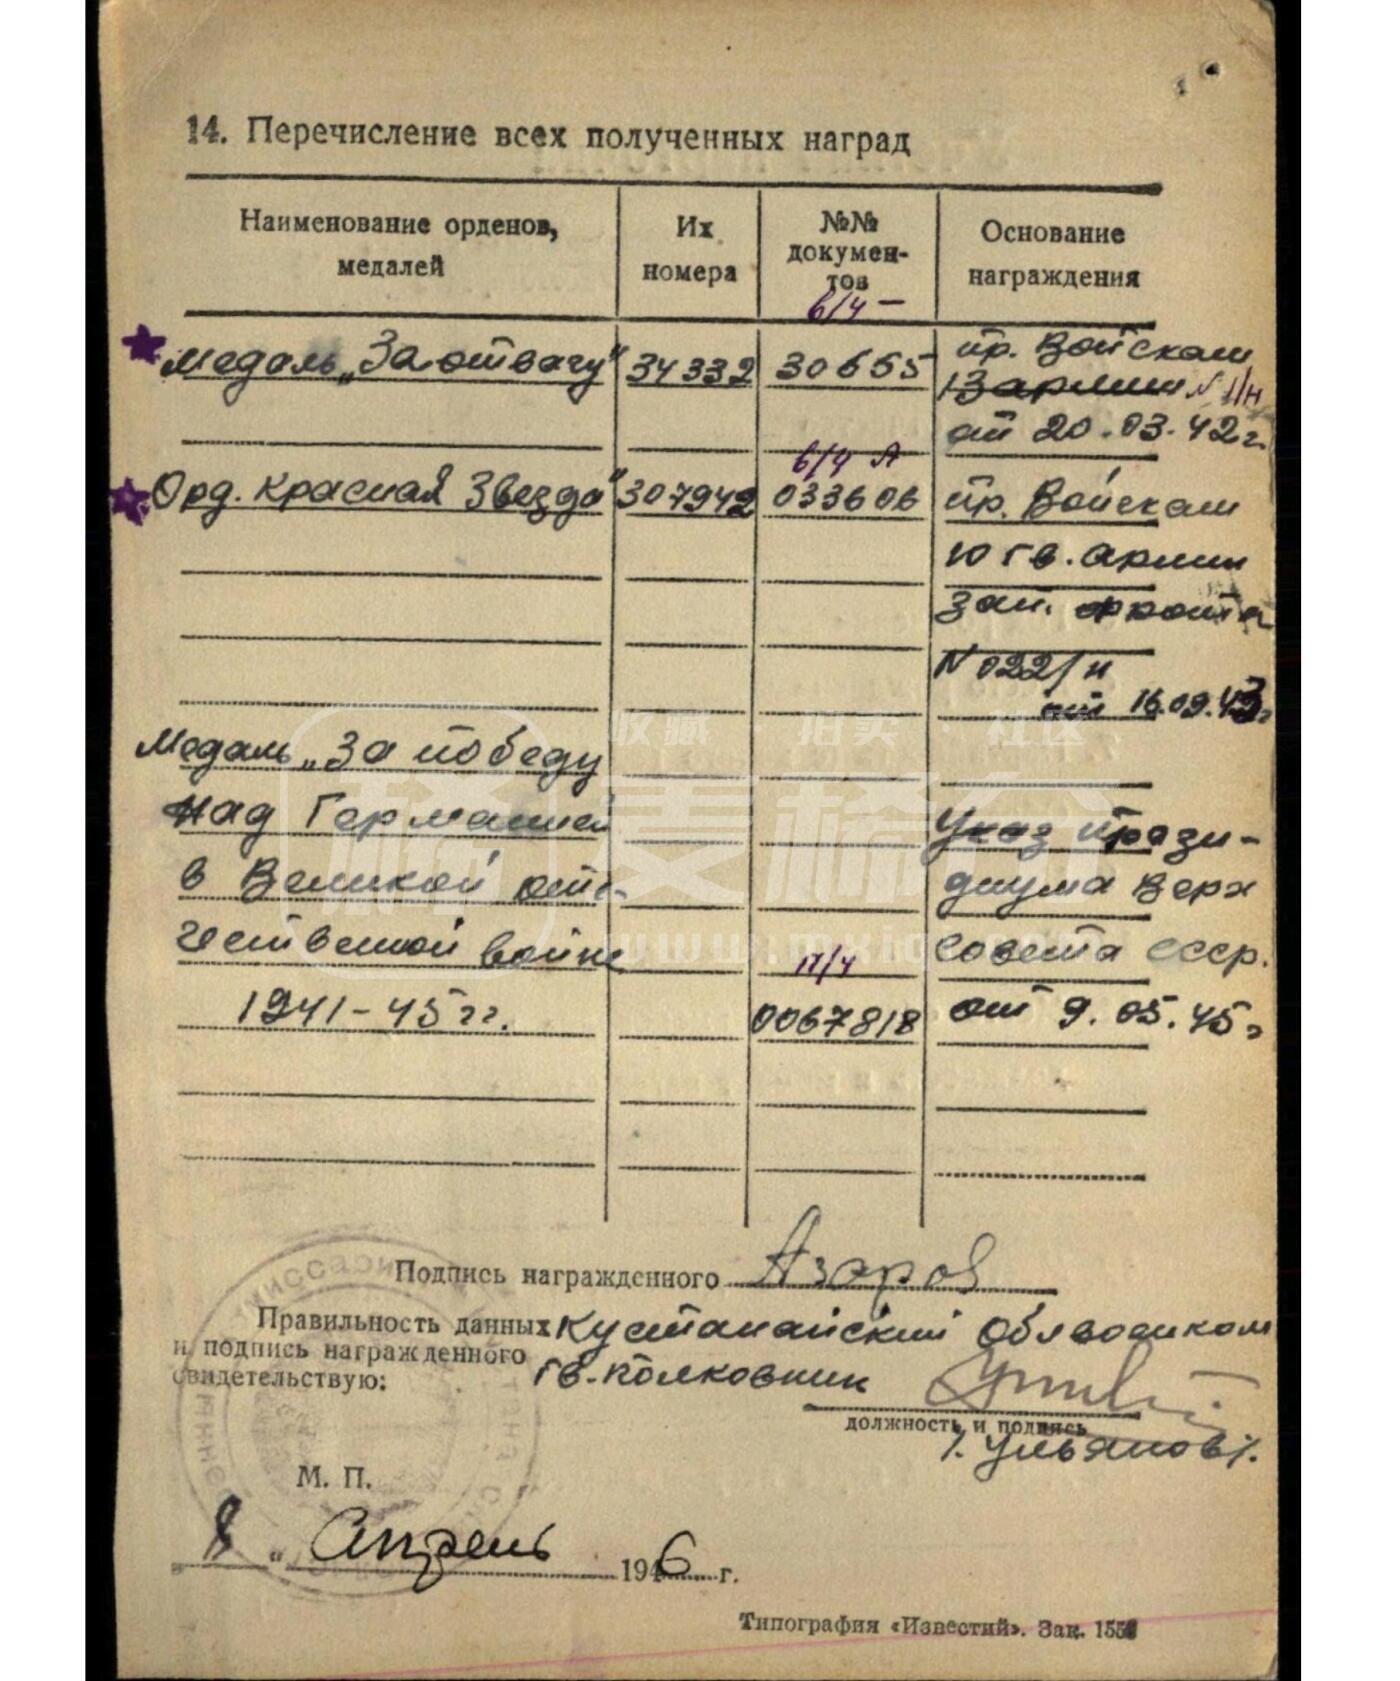 14. Перечисление всех полученных наград
Наименование орденов, медалей
Их номера
№№ докумен-тов
Основание награждения
б/ч —
Медаль „За отвагу" 34332 30655 пр. Войскам
13 армии № 1/н
от 20.03.42г.
б/ч А
Орд. Красная Звезда" 307942 033606 пр. Войскам
10 гв. армии
Зап. фронта
N 022/н
от 16.09.43г
收藏 · 拍卖 · 社区
Медаль „За победу
над Германией Указ Прези-
в Великой оте- диума Верх
чественной войне Совета СССР.
П/ч
1941-45гг. 0067818 от 9.05.45г
Подпись награжденного Азаров
Правильность данных Кустанайский Облвоенком
и подпись награжденного
гв. полковник
свидетельствую:
должность и подпись
/. Ульянов /.
М. П.
8 „ Апрель 1946 г.
Типография «Известий». Зак.